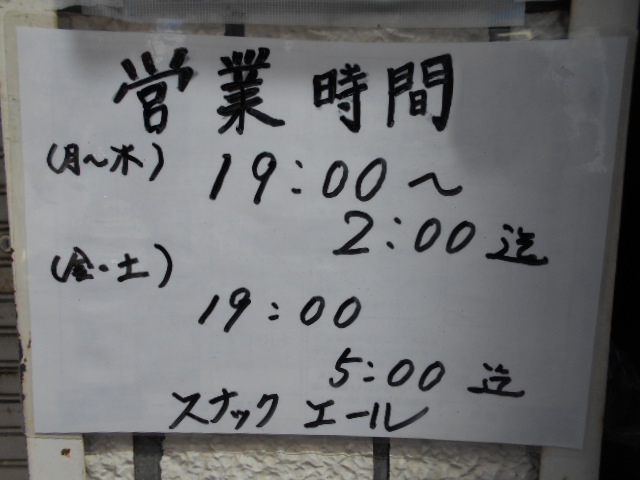 営業時間
(月〜木) 19:00〜
2:00 迄
(金・土)
19:00
5:00 迄
スナック エール